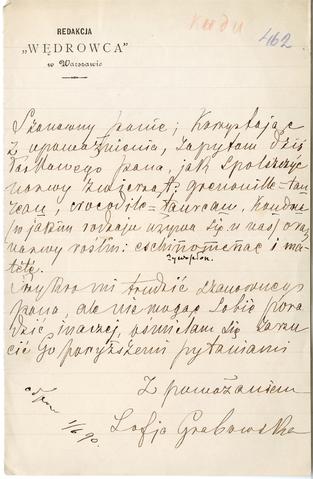 REDAKCJA
„WĘDROWCA"
w Warszawie
Kudu
462
Szanowny Panie; Korzystając
z upoważnienia, zapytam dziś
łaskawego Pana, jak spolszczyć
nazwy zwierząt: grenouille=tau-
reau, crocodile=taureau, Koudou
(w jakim rodzaju używa się u nas) oraz
nazwy roślin: eschinomenae i ma-
tété.
Przykro mi trudzić Szanownego
Pana, ale nie mogąc sobie pora
dzić inaczej, ośmielam się zarzu
cić Go powyższemi pytaniami
Z poważaniem
Zofja Grabowska
odp.
1/6 90.